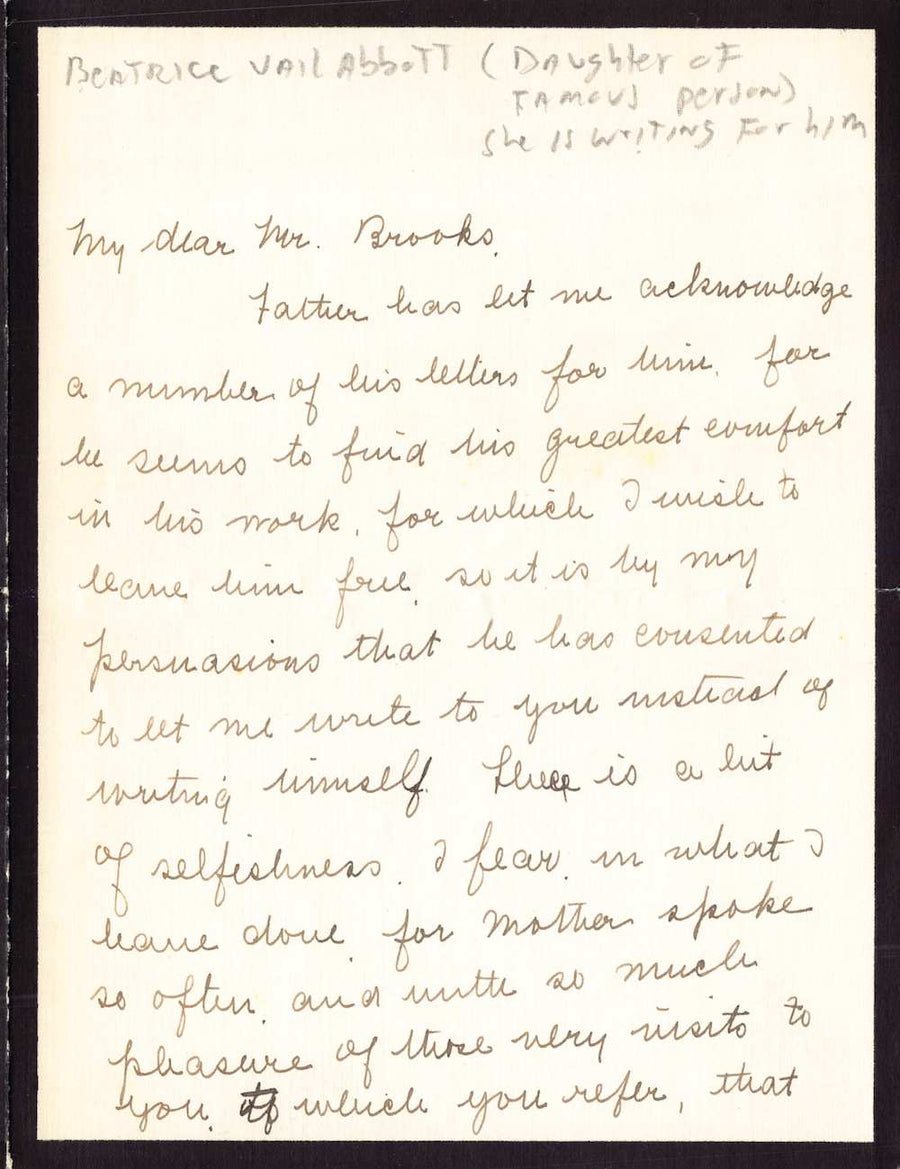 BEATRICE VAIL AbboTT (DAughter oF
FAMOUS person)
She IS WRITING For him
My dear Mr. Brooks,
Father has let me acknowledge
a number of his letters for him, for
he seems to find his greatest comfort
in his work, for which I wish to
leave him free, so it is by my
persuasions that he has consented
to let me write to you instead of
writing himself. There is a bit
of selfishness, I fear, in what I
have done, for Mother spoke
so often, and with so much
pleasure of those very visits to
you, to which you refer, that